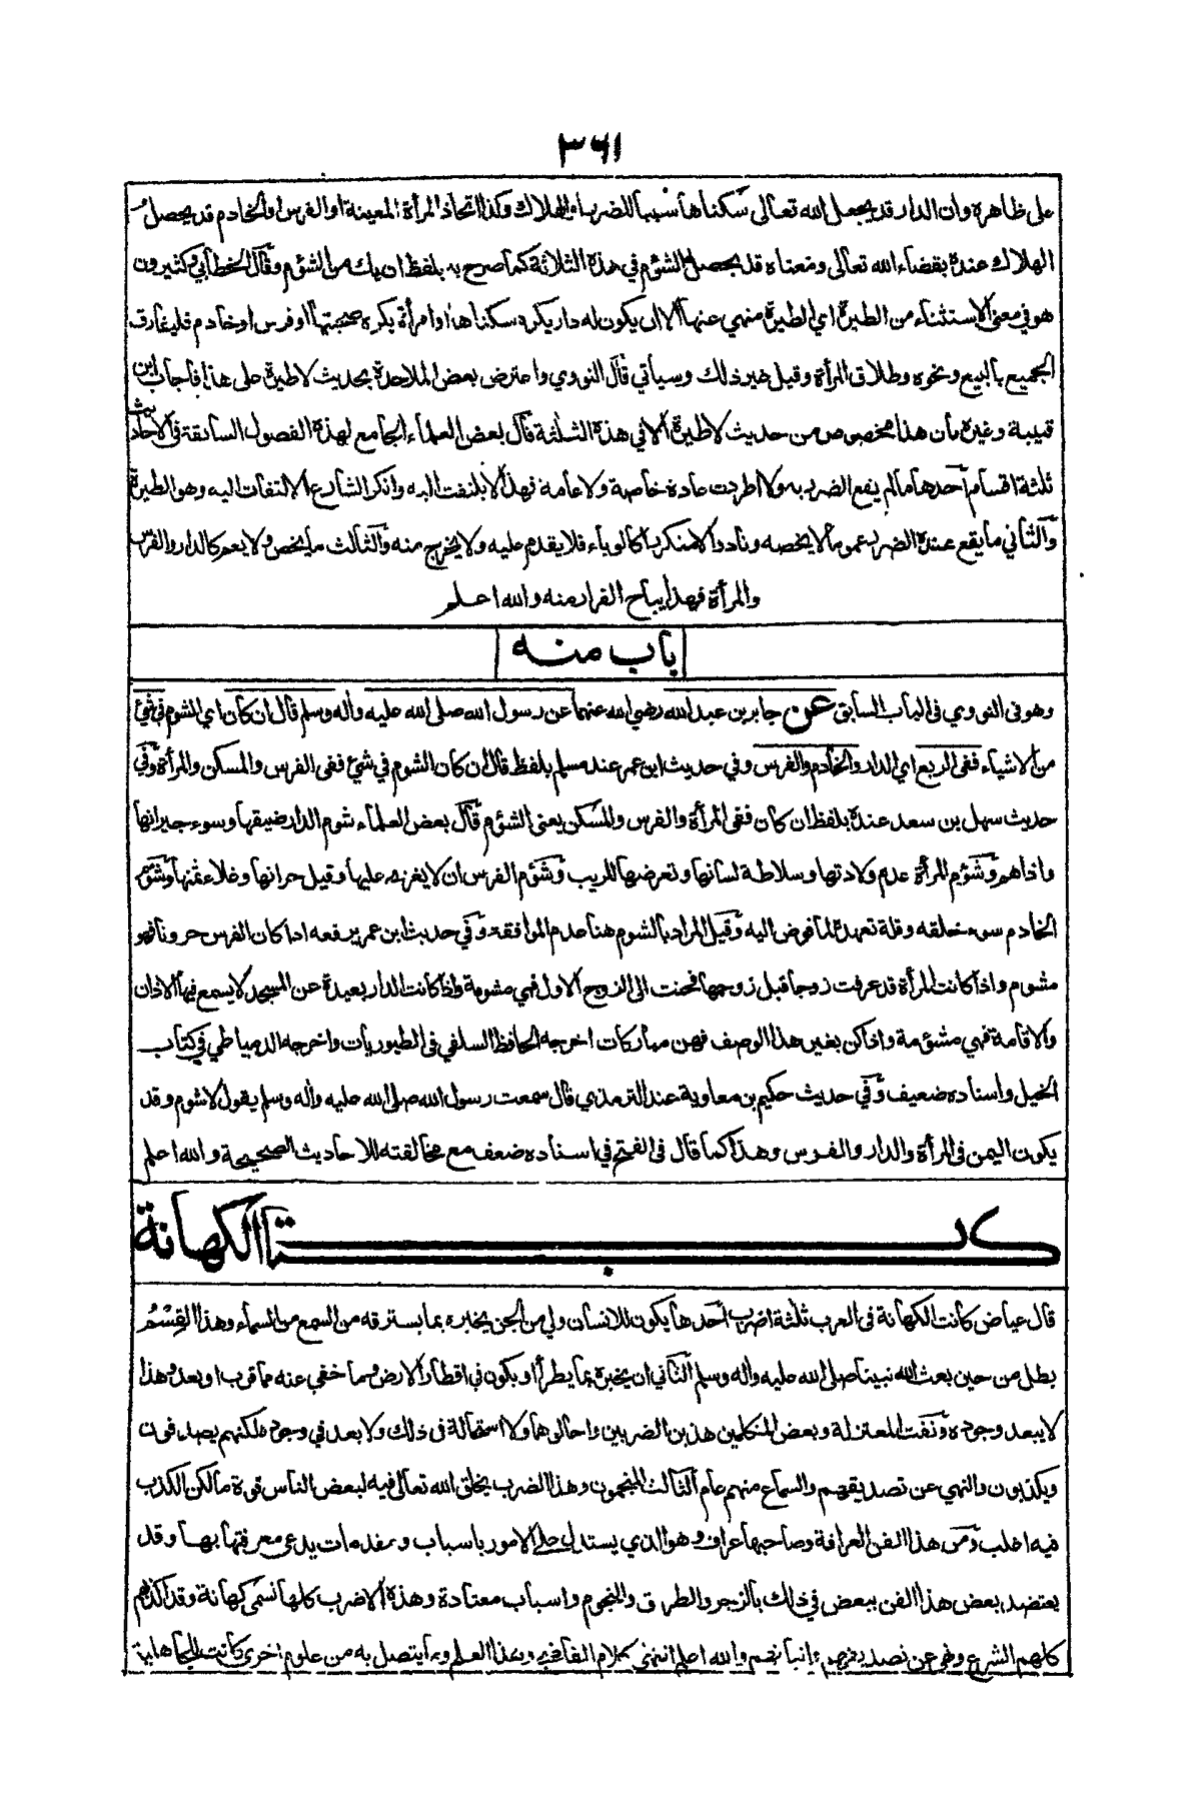 ٣٦١
على ظاهره وان الدار قد يجعل الله تعالى سكناها سببا للضرر او الهلاك وكذا اتخاذ المرأة المعينة او الفرس او الخادم قد يحصل
الهلاك عنده بقضاء الله تعالى ومعناه قد يحصل الشؤم في هذه الثلاثة كما صرح به بلفظ ان يك من الشؤم وقال الخطابي وكثيرون
هو في معنى الاستثناء من الطيرة اي الطيرة منهي عنها الا ان يكون له دار يكره سكناها او امرأة يكره صحبتها او فرس او خادم فليفارق
الجميع بالبيع ونحوه وطلاق المرأة وقيل غير ذلك وسيأتي قال النووي واعترض بعض الملاحدة بحديث لا طيرة على هذا فاجاب ابن
قتيبة وغيره بان هذا مخصوص من حديث لا طيرة الا في هذه الثلثة قال بعض العلماء الجامع لهذه الفصول السابقة في الاحاديث
ثلثة اقسام احدها ما لم يقع الضرر به ولا اطردت عادة خاصة ولا عامة فهذا لا يلتفت اليه وانكر الشارع الالتفات اليه وهو الطيرة
والثاني ما يقع عنده الضرر عموما لا يخصه ونادرا لا متكررا كالوباء فلا يقدم عليه ولا يخرج منه والثالث ما يخص ولا يعم كالدار والفرس
والمرأة فهذا يباح الفرار منه والله اعلم
باب منه
وهو في النووي في الباب السابق عن جابر بن عبد الله رضي الله عنهما عن رسول الله صلى الله عليه واله وسلم قال ان كان اي الشوم في شئ
من الاشياء ففي الربع اي الدار والخادم والفرس وفي حديث ابن عمر عند مسلم بلفظ قال ان كان الشوم في شئ ففي الفرس والمسكن والمرأة وفي
حديث سهل بن سعد عنده بلفظ ان كان ففي المرأة والفرس والمسكن يعني الشؤم قال بعض العلماء شوم الدار ضيقها وسوء جيرانها
واذاهم وشؤم المرأة عدم ولادتها وسلاطة لسانها وتعرضها للريب وشؤم الفرس ان لا يغزى عليها وقيل حرانها وغلاء ثمنها وشؤم
الخادم سوء خلقه وقلة تعهده لما فوض اليه وقيل المراد بالشوم هنا عدم الموافقة وفي حديث ابن عمر يرفعه اذا كان الفرس حرونا فهو
مشوم واذا كانت المرأة قد عرفت زوجا قبل زوجها فحنت الى الزوج الاول فهي مشومة واذا كانت الدار بعيدة عن المسجد لا يسمع فيها الاذان
والاقامة فهي مشؤمة واذا كن بغير هذا الوصف فهن مباركات اخرجه الحافظ السلفي في الطيوريات واخرجه الدمياطي في كتاب
الخيل واسناده ضعيف وفي حديث حكيم بن معاوية عند الترمذي قال سمعت رسول الله صلى الله عليه واله وسلم يقول لا شوم وقد
يكون اليمن في المرأة والدار والفرس وهذا كما قال في الفتح في اسناده ضعف مع مخالفته للاحاديث الصحيحة والله اعلم
كتاب الكهانة
قال عياض كانت الكهانة في العرب ثلثة اضرب احدها يكون للانسان ولي من الجن يخبره بما يسترقه من السمع من السماء وهذا القسم
بطل من حين بعث الله نبينا صلى الله عليه واله وسلم الثاني ان يخبره بما يطرأ او يكون في اقطار الارض وما خفي عنه مما قرب او بعد وهذا
لا يبعد وجوده ونفت المعتزلة وبعض المتكلمين هذين الضربين واحالوهما ولا استحالة في ذلك ولا بعد في وجوده لكنهم يصدقون
ويكذبون والنهي عن تصديقهم والسماع منهم عام الثالث المنجمون وهذا الضرب يخلق الله تعالى فيه لبعض الناس قوة ما لكن الكذب
فيه اغلب ومن هذا الفن العرافة وصاحبها عراف وهو الذي يستدل على الامور باسباب ومقدمات يدعي معرفتها بها وقد
يعتضد بعض هذا الفن ببعض في ذلك بالزجر والطرق والنجوم واسباب معتادة وهذه الاضرب كلها تسمى كهانة وقد اكذبهم
كلهم الشرع ونهى عن تصديقهم واتيانهم والله اعلم انتهى كلام القاضي وبهذا العلم وما يتصل به من علوم اخرى كانت